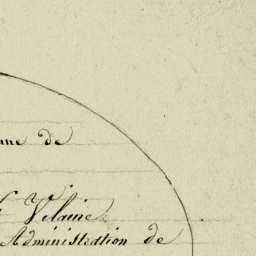 de
Vilaine
Administration de